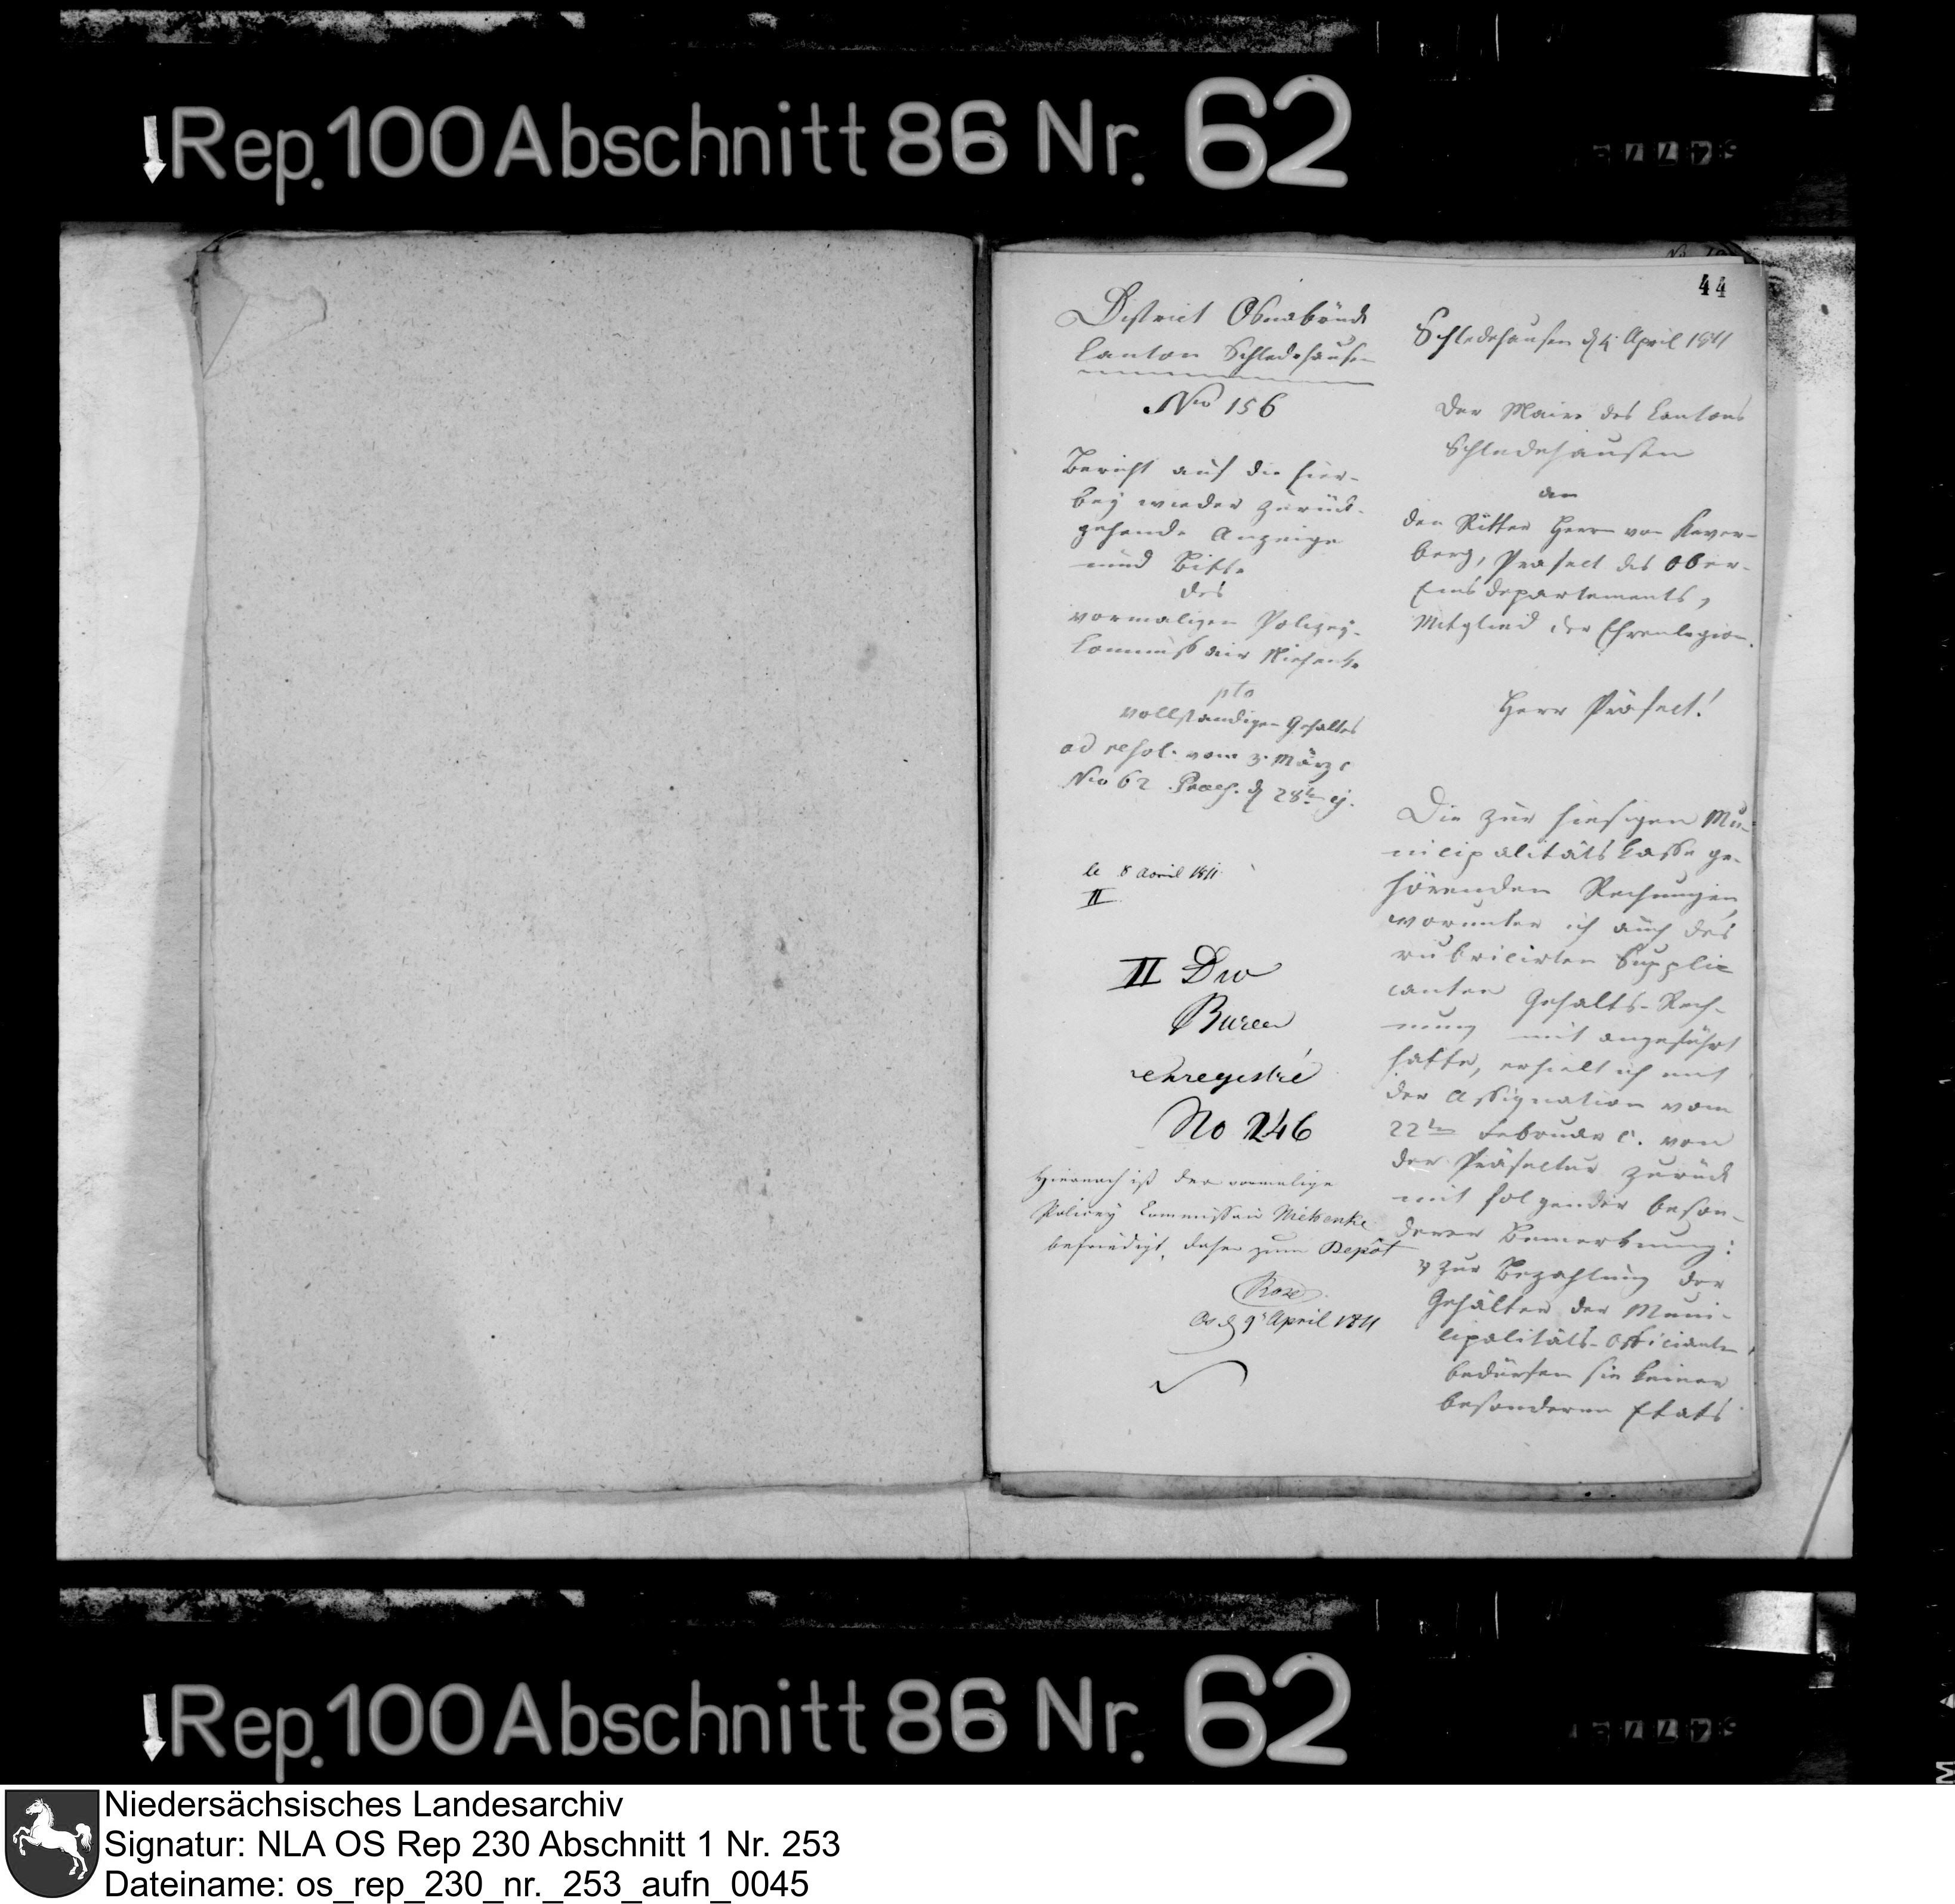 Rep. 100 Abschnitt 86 Nr. 62
44
District Osnabrück
Canton Schledehausen
Nro 156
Bericht auf die hier-
bey wieder zurück-
gehende Anzeige
und Bitte
des
vormaligen Polizey-
Commissair Niehenke
pto
vollständigen Gehaltes
ad resol. vom 3. März c
Nro 62 Praes. d 28ten ej.
le 8 avril 1811
II
II Div
Bureau
enregistré
No 246
Hiernach ist der vormalige
Policey Commissair Niehenke
befriedigt, daher zum Depôt
Rose
Os d 9 April 1811
Schledehausen d 4 April 1811
Der Maire des Cantons
Schledehausen
an
den Ritter Herrn von Kever-
berg, Präfect des Ober-
Emsdepartements,
Mitglied der Ehrenlegion.
Herr Präfect!
Die zur hiesigen Mu-
nicipalitäts Casse ge-
hörenden Rechnungen,
worunter ich auch des
rubricirten Suppli-
canten Gehalts-Rech-
nung mit angeführt
hatte, erhielt ich mit
der Assignation vom
22ten Februar c. von
der Präfectur zurück
mit folgender beson-
derer Bemerkung:
"Zur Bezahlung der
Gehälter der Muni-
cipalitäts-Officianten
bedürfen sie keiner
besonderen Etats
Rep. 100 Abschnitt 86 Nr. 62
Niedersächsisches Landesarchiv
Signatur: NLA OS Rep 230 Abschnitt 1 Nr. 253
Dateiname: os_rep_230_nr._253_aufn_0045